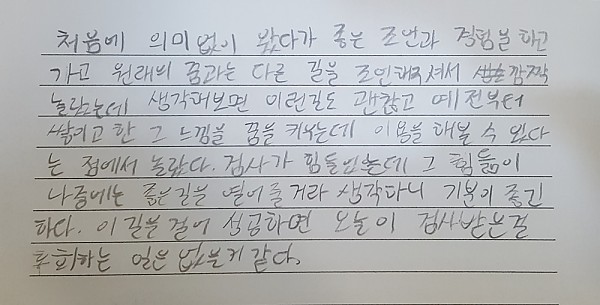 처음에 의미없이 왔다가 좋은 조언과 경험을 하고
가고 원래의 꿈과는 다른 길을 조언해주셔서 깜짝
놀랐는데 생각해보면 이런길도 괜찮고 예전부터
쌓이고 한 그 느낌을 꿈을 키웠는데 이용을 해볼 수 있다
는 점에서 놀랐다. 검사가 힘들었는데 그 힘듦이
나중에는 좋은길을 열어줄거라 생각하니 기분이 좋긴
하다. 이 길을 걸어 성공하면 오늘이 검사받은걸
후회하는 일은 없을거 같다.